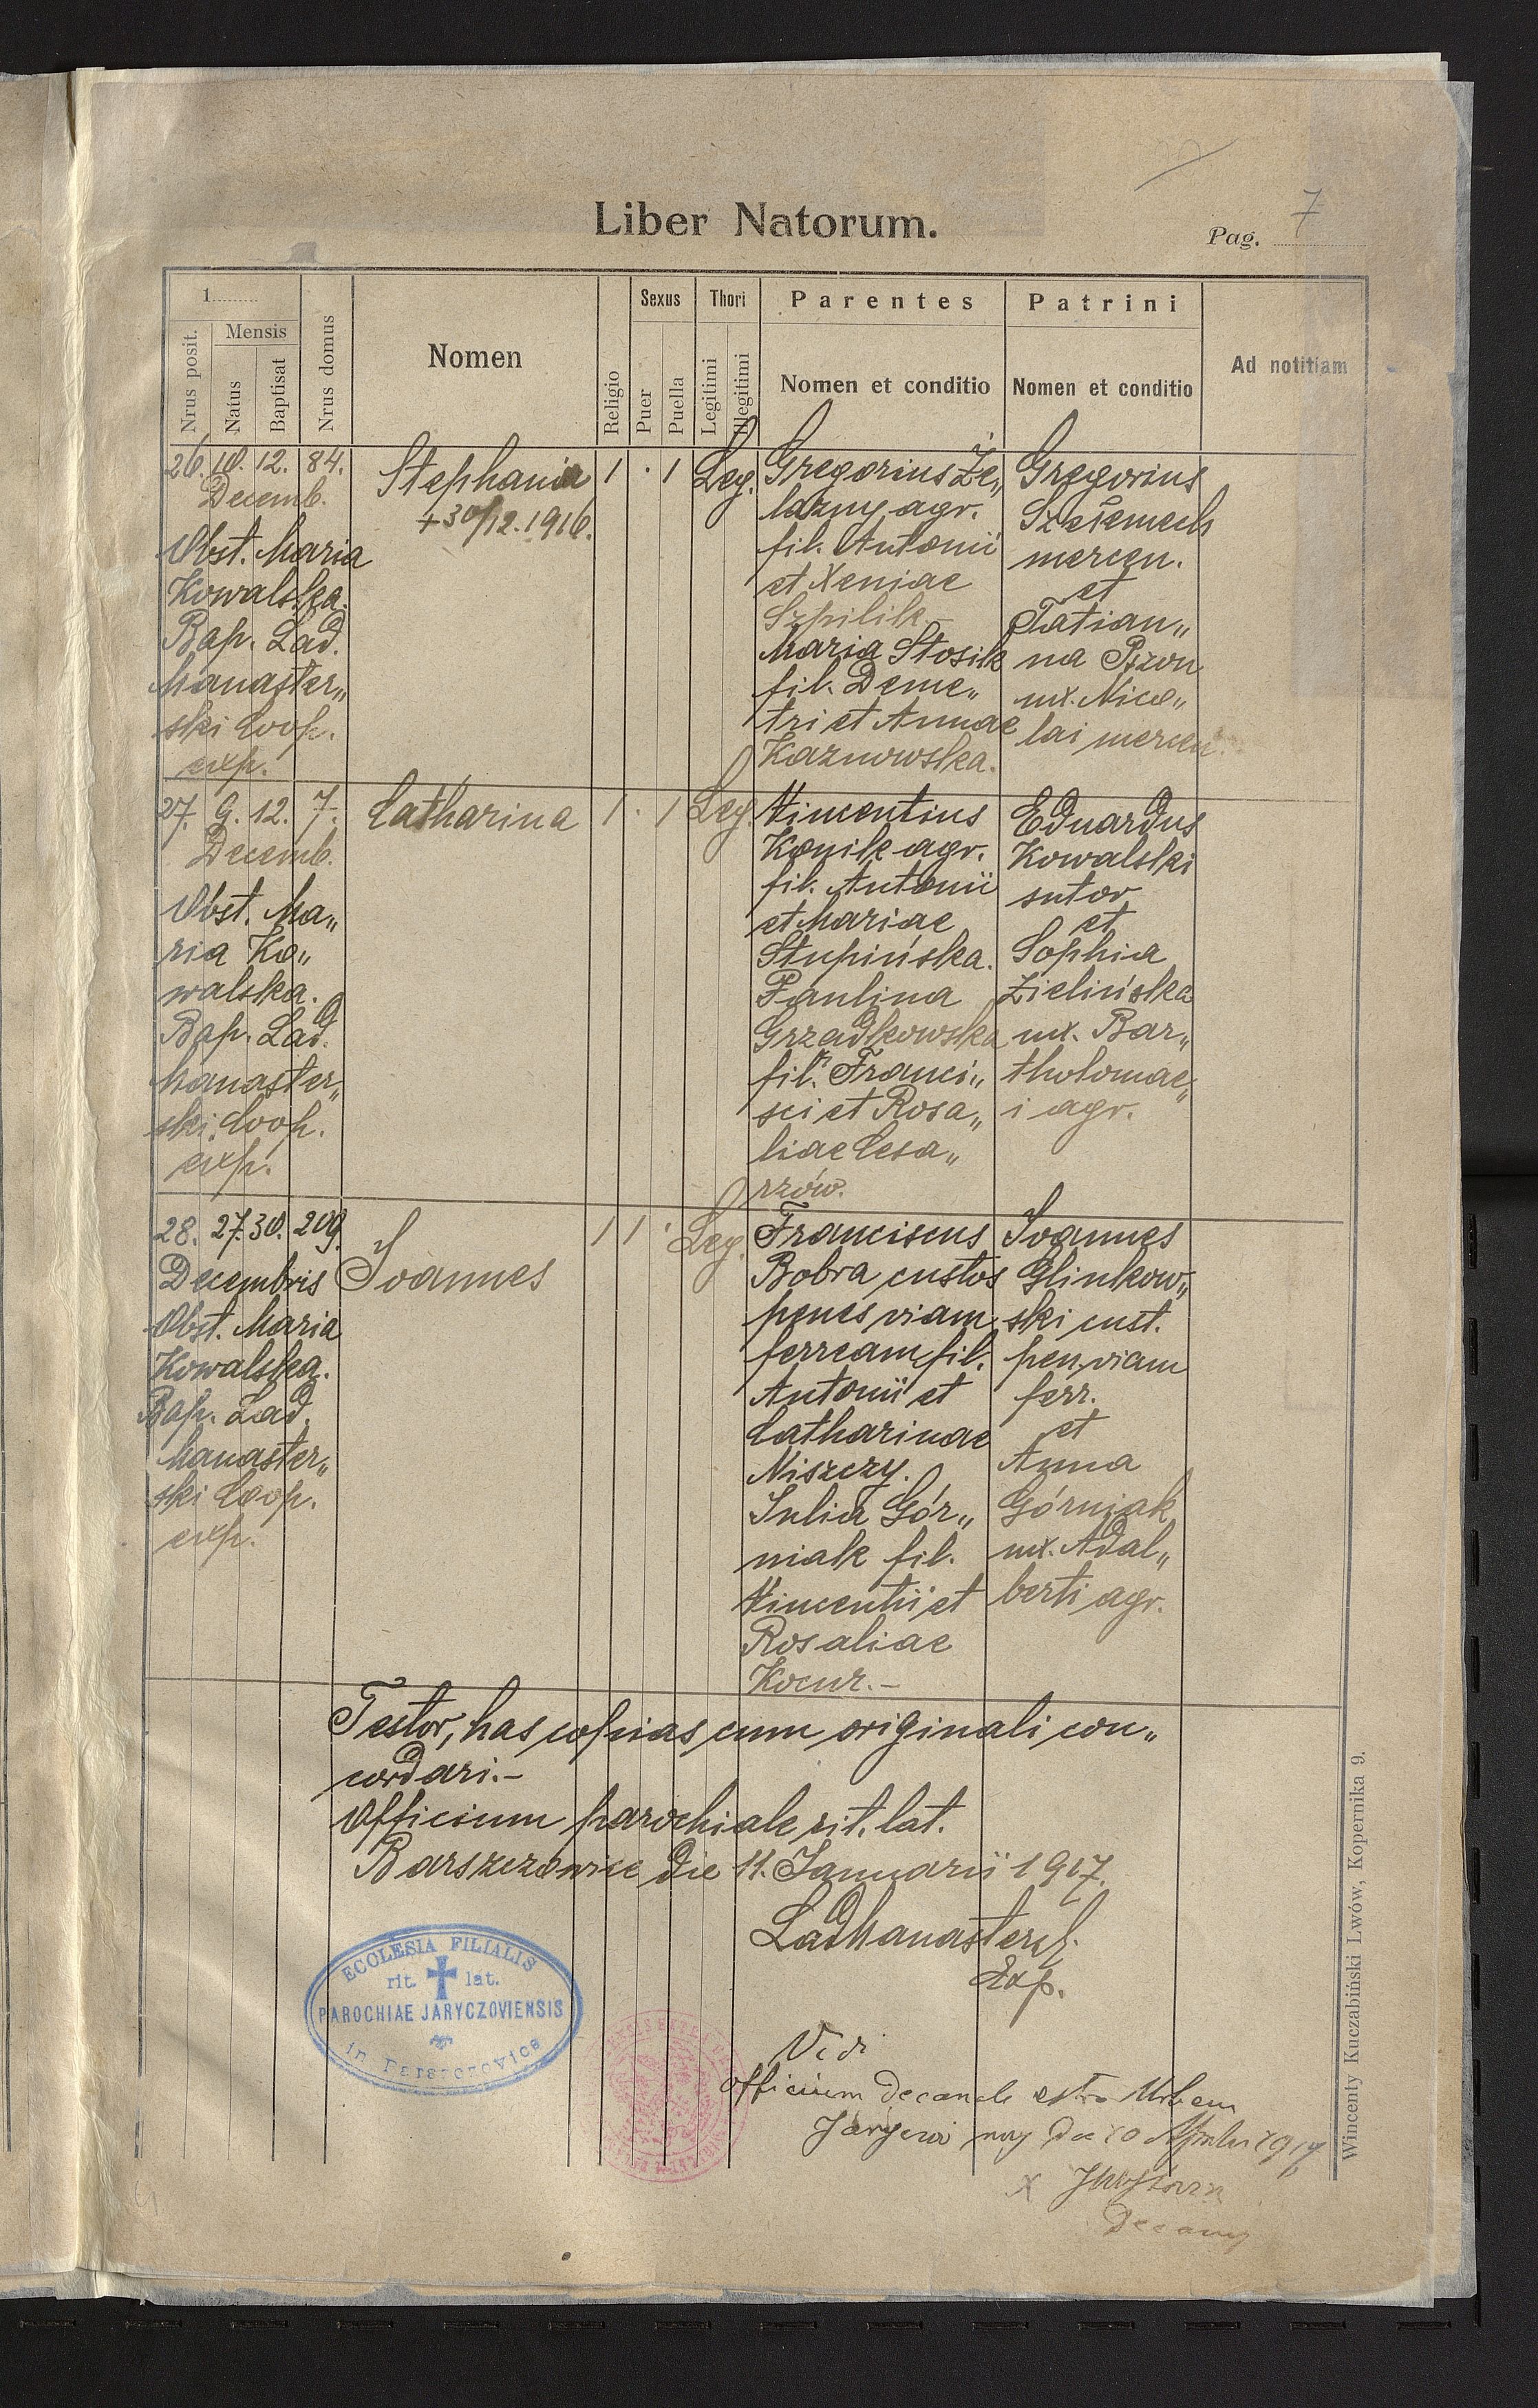 Liber Natorum.
Pag. 7
1
Nrus posit.
Mensis
Natus
Baptisat
Nrus domus
Nomen
Religio
Sexus
Puer
Puella
Thori
Legitimi
Illegitimi
Parentes
Nomen et conditio
Patrini
Nomen et conditio
Ad notitiam
26. 10. 12. 84.
Decemb.
Obst. Maria
Kowalska.
Bap. Lad.
Manaster„
ski Coop.
exp.
Stephania
+30/12.1916.
1 · 1 Leg.
Gregorius Że„
lazny agr.
fil. Antonii
et Xeniae
Szpilik –
Maria Stosik
fil. Deme„
tri et Annae
Kaznowska.
Gregorius
mercen.
et
Tatian„
na
ux. Nico„
lai mercen.
27. 9. 12. 7.
Decemb.
Obst. Ma„
ria Ko„
walska.
Bap. Lad.
Manaster„
ski Coop.
exp.
Catharina
1 · 1 Leg.
Vincentius
Konik agr.
fil. Antonii
et Mariae
Stupińska.
Paulina
Grzadkowska
fil. Franci„
sci et Rosa„
liae Cesa„
rzów.
Eduardus
Kowalski
sutor
et
Sophia
Zielińska
ux. Bar„
tholomae„
i agr.
28. 27. 30. 209.
Decembris
Obst. Maria
Kowalska.
Bap. Lad.
Manaster„
ski Coop.
exp.
Joannes
1 1 · Leg.
Franciscus
Bobra custos
penes viam
ferream fil.
Antonii et
Catharinae
Niszczy.
Julia Gór„
niak fil.
Vincentii et
Rosaliae
Kocur.–
Joannes
Glinkow„
ski cust.
pen. viam
ferr.
et
Anna
Górniak
ux. Adal„
berti agr.
Testor, has copias cum originali con„
cordari.–
Officium parochiale rit. lat.
Barszczowice die 11. Januarii 1917.
Exp.
ECCLESIA FILIALIS
rit. lat.
PAROCHIAE JARYCZOVIENSIS
in Barszczowice
Vidi
Officium Decanale extra Urbem
1917
Decanus
Wincenty Kuczabiński Lwów, Kopernika 9.